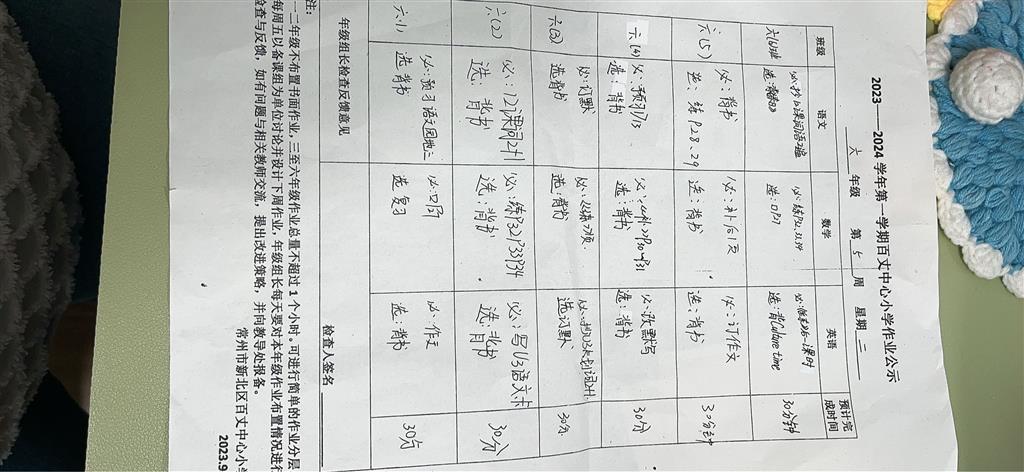 2023——2024学年第一学期百丈中心小学作业公示
六 年级 第 5 周 星期 二
班级 语文 数学 英语 预计完成时间
六(6)班
选:背书
选:背Culture time
30分钟
六(5)
必:背书
选:练P28、29
必:补后1页
选:背书
必:订作文
选:背书
30分钟
六(4)
必:预习U13
选:背书
选:背书
必:改默写
选:背书
30分
六(3)
必:订默
选:背书
选:背书
选订默
30分
六(2)
必:12课词2+1
选:背书
必:练P32P33P34
选:背书
必:写U3语文卡
选:背书
30分
六(1)
必:预习语文园地二
选:背书
选:复习
必:作文
选:背书
30分
年级组长检查反馈意见
检查人签名
注:
一二年级不布置书面作业,三至六年级作业总量不超过1个小时。可进行简单的作业分层
每周五以备课组为单位讨论并设计下周作业,年级组长每天要对本年级作业布置情况进行
检查与反馈,如有问题与相关教师交流,提出改进策略,并向教导处报备。
常州市新北区百丈中心小学
2023.9